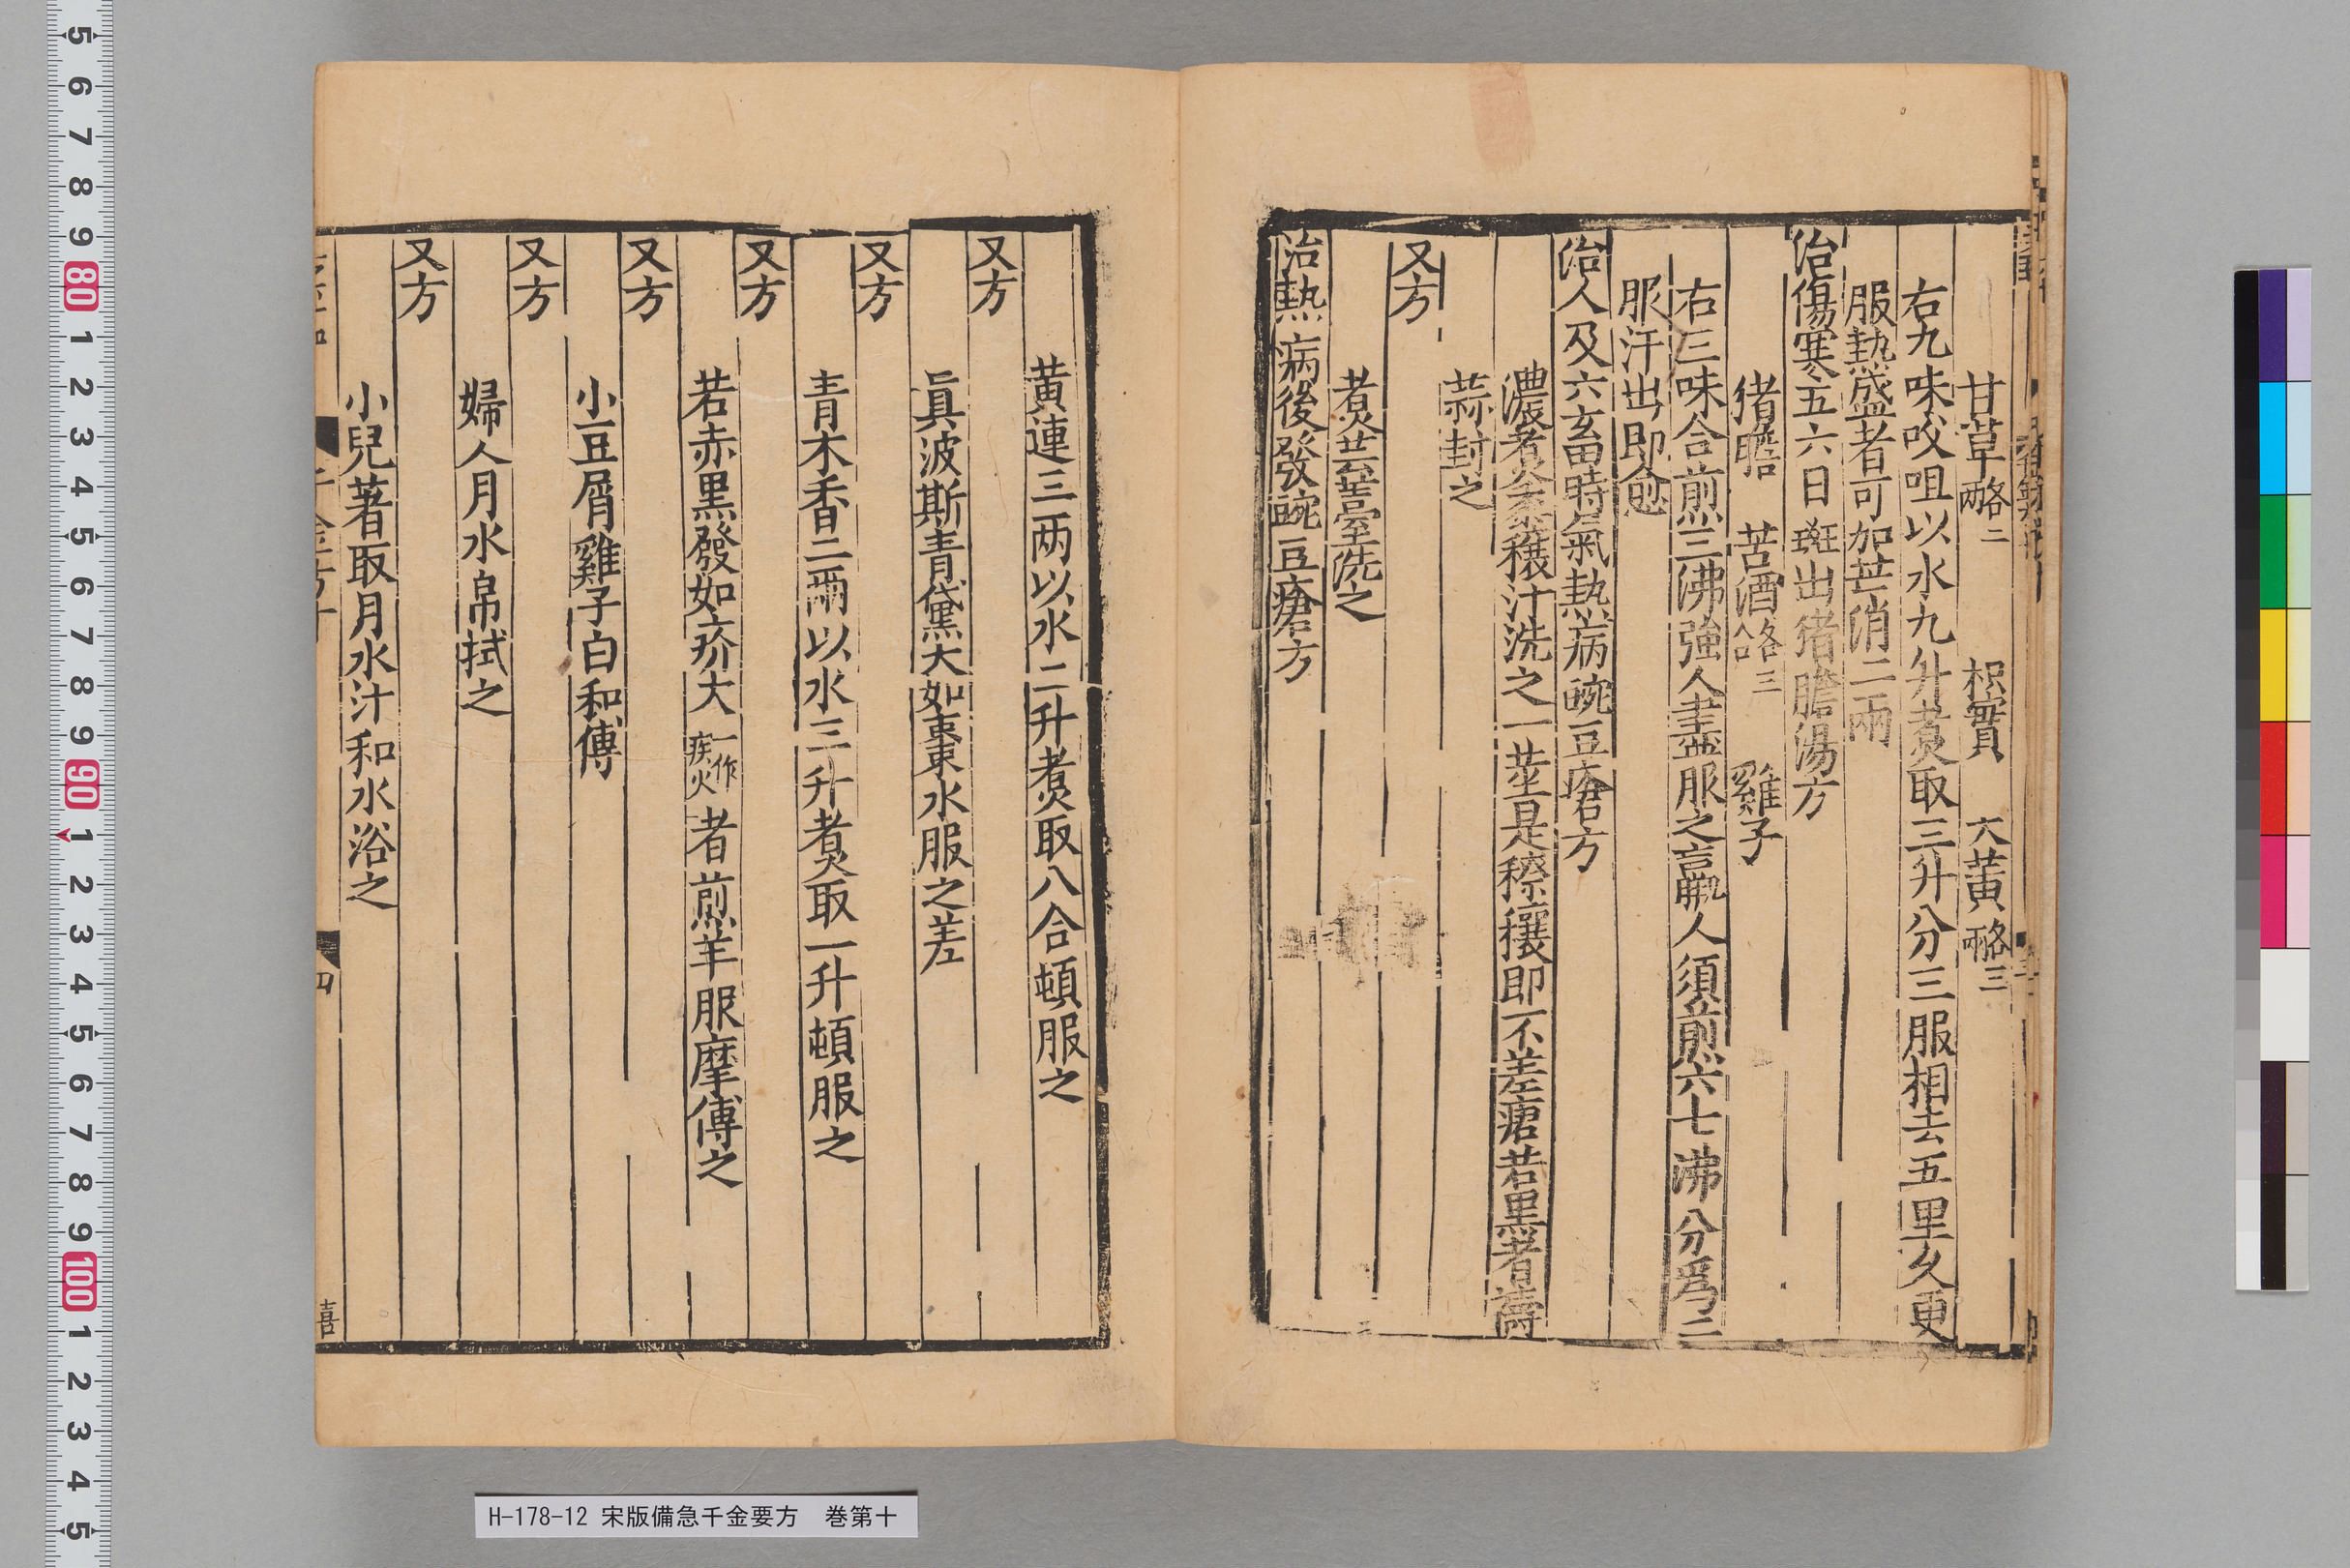 甘草各二兩　枳實　大黃各三兩
右九味㕮咀以水九升煮取三升分三服相去五里久更
服熱盛者可加芒消二兩
治傷寒五六日斑出猪膽湯方
猪膽　苦酒各三合　雞子一枚
右三味合煎三沸強人盡服之羸人須煎六七沸分爲二
服汗出即愈
治人及六畜時氣熱病豌豆瘡方
濃煮黍穰汁洗之一莖是穄穰即不差瘡若黑者擣
蒜封之
又方
煮芸薹洗之
治熱病後發豌豆瘡方
黃連三两以水二升煮取八合頓服之
又方
眞波斯青黛大如棗水服之差
又方
青木香二兩以水三升煮取一升頓服之
又方
若赤黑發如疥大一作疾火者煎羊服摩傅之
又方
小豆屑雞子白和傅
又方
婦人月水帛拭之
又方
小兒著取月水汁和水浴之
四
喜
H-178-12 宋版備急千金要方　巻第十
5 6 7 8 9 80 1 2 3 4 5 6 7 8 9 90 1 2 3 4 5 6 7 8 9 100 1 2 3 4 5